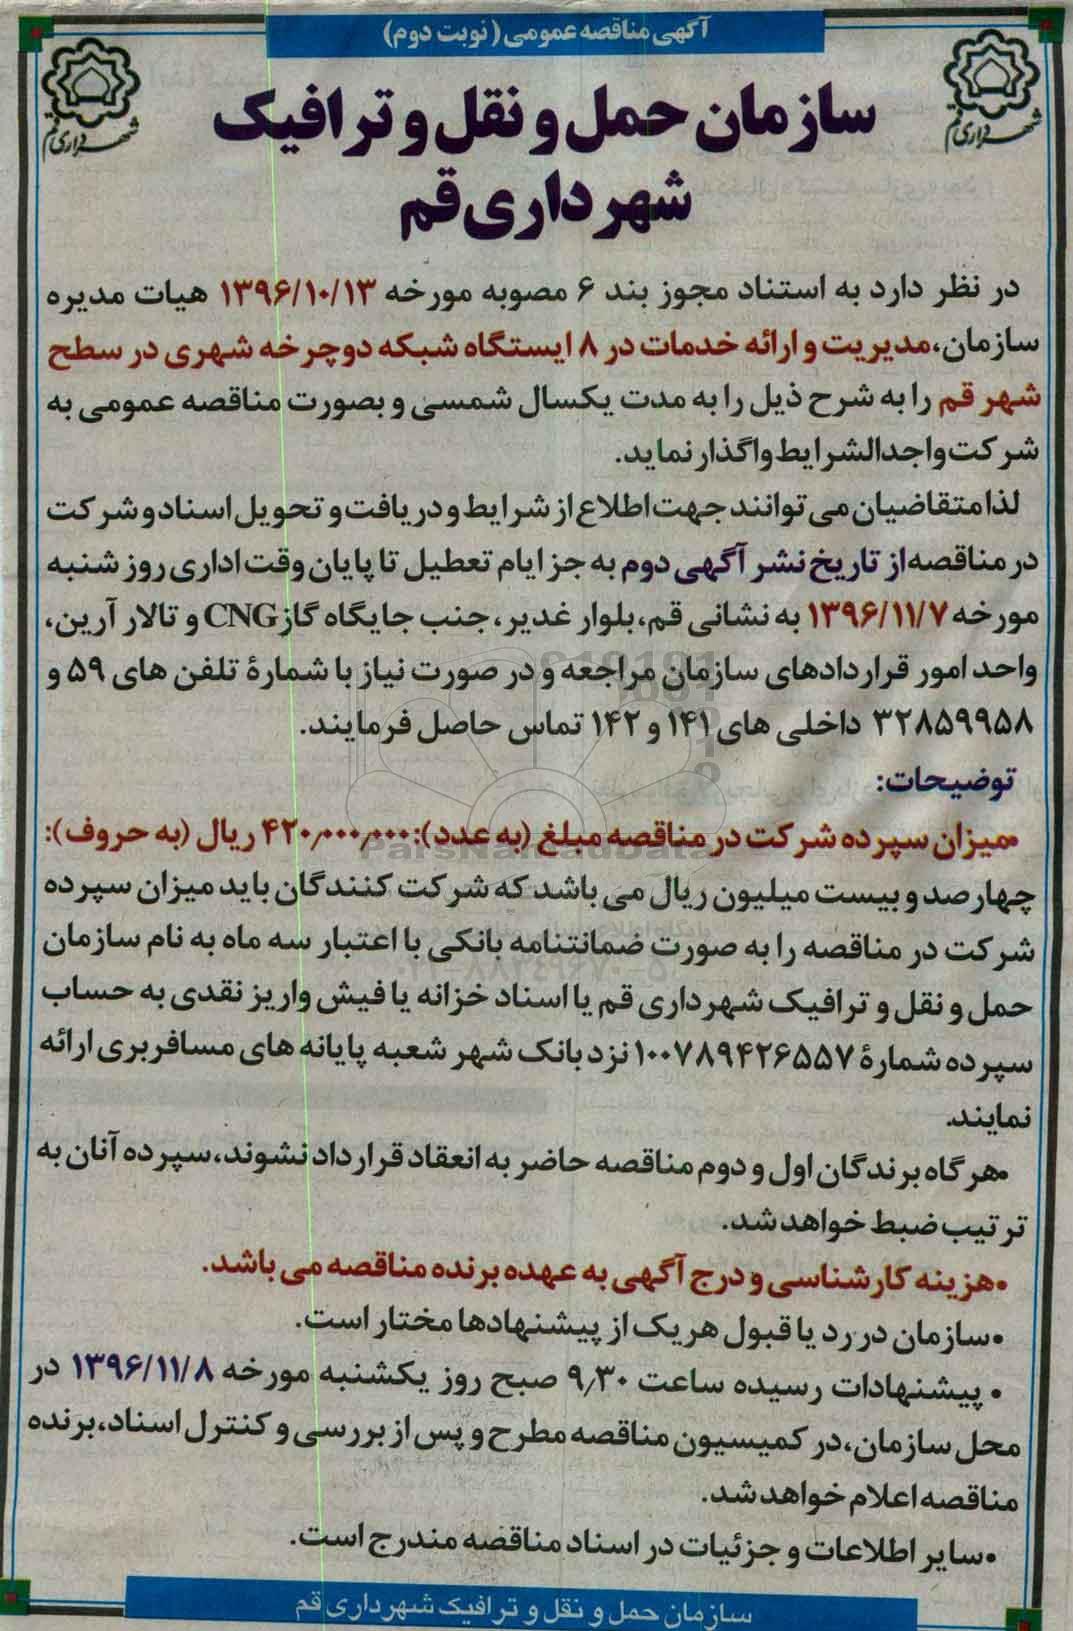 آگهی مناقصه عمومی (نوبت دوم)
شهرداری قم
شهرداری قم
سازمان حمل و نقل و ترافیک
شهرداری قم
در نظر دارد به استناد مجوز بند ۶ مصوبه مورخه ۱۳۹۶/۱۰/۱۳ هیات مدیره
سازمان،مدیریت و ارائه خدمات در ۸ ایستگاه شبکه دوچرخه شهری در سطح
شهر قم را به شرح ذیل را به مدت یکسال شمسی و بصورت مناقصه عمومی به
شرکت واجدالشرایط واگذار نماید.
لذا متقاضیان می توانند جهت اطلاع از شرایط و دریافت و تحویل اسناد و شرکت
در مناقصه از تاریخ نشر آگهی دوم به جز ایام تعطیل تا پایان وقت اداری روز شنبه
مورخه ۱۳۹۶/۱۱/۷ به نشانی قم، بلوار غدیر، جنب جایگاه گاز CNG و تالار آرین،
واحد امور قراردادهای سازمان مراجعه و در صورت نیاز با شمارهٔ تلفن های ۵۹ و
۳۲۸۵۹۹۵۸ داخلی های ۱۴۱ و ۱۴۲ تماس حاصل فرمایند.
توضیحات:
•میزان سپرده شرکت در مناقصه مبلغ (به عدد): ۴۲۰٫۰۰۰٫۰۰۰ ریال (به حروف):
چهارصد و بیست میلیون ریال می باشد که شرکت کنندگان باید میزان سپرده
شرکت در مناقصه را به صورت ضمانتنامه بانکی با اعتبار سه ماه به نام سازمان
حمل و نقل و ترافیک شهرداری قم یا اسناد خزانه یا فیش واریز نقدی به حساب
سپرده شمارهٔ ۱۰۰۷۸۹۴۲۶۵۵۷ نزد بانک شهر شعبه پایانه های مسافربری ارائه
نمایند.
•هرگاه برندگان اول و دوم مناقصه حاضر به انعقاد قرارداد نشوند، سپرده آنان به
ترتیب ضبط خواهد شد.
•هزینه کارشناسی و درج آگهی به عهده برنده مناقصه می باشد.
•سازمان در رد یا قبول هریک از پیشنهادها مختار است.
• پیشنهادات رسیده ساعت ۹٫۳۰ صبح روز یکشنبه مورخه ۱۳۹۶/۱۱/۸ در
محل سازمان،در کمیسیون مناقصه مطرح و پس از بررسی و کنترل اسناد، برنده
مناقصه اعلام خواهد شد.
•سایر اطلاعات و جزئیات در اسناد مناقصه مندرج است.
سازمان حمل و نقل و ترافیک شهرداری قم
ParsNamadData